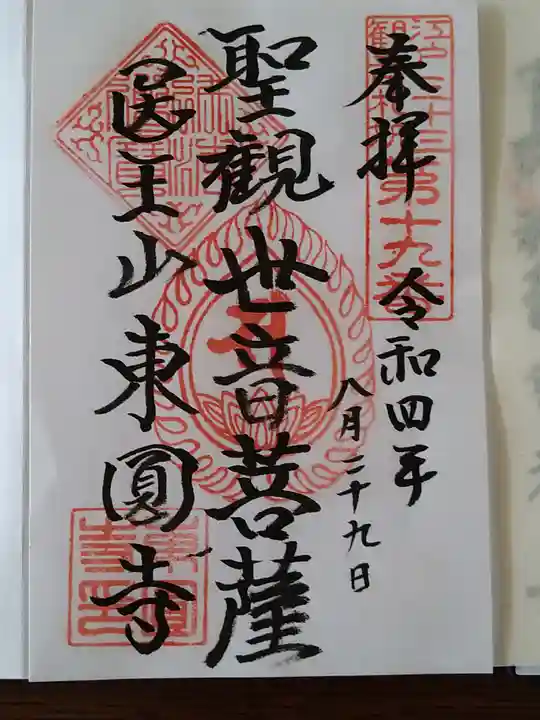 奉拝
令和四年
八月二十九日
聖観世音菩薩
医王山東圓寺
第十九番